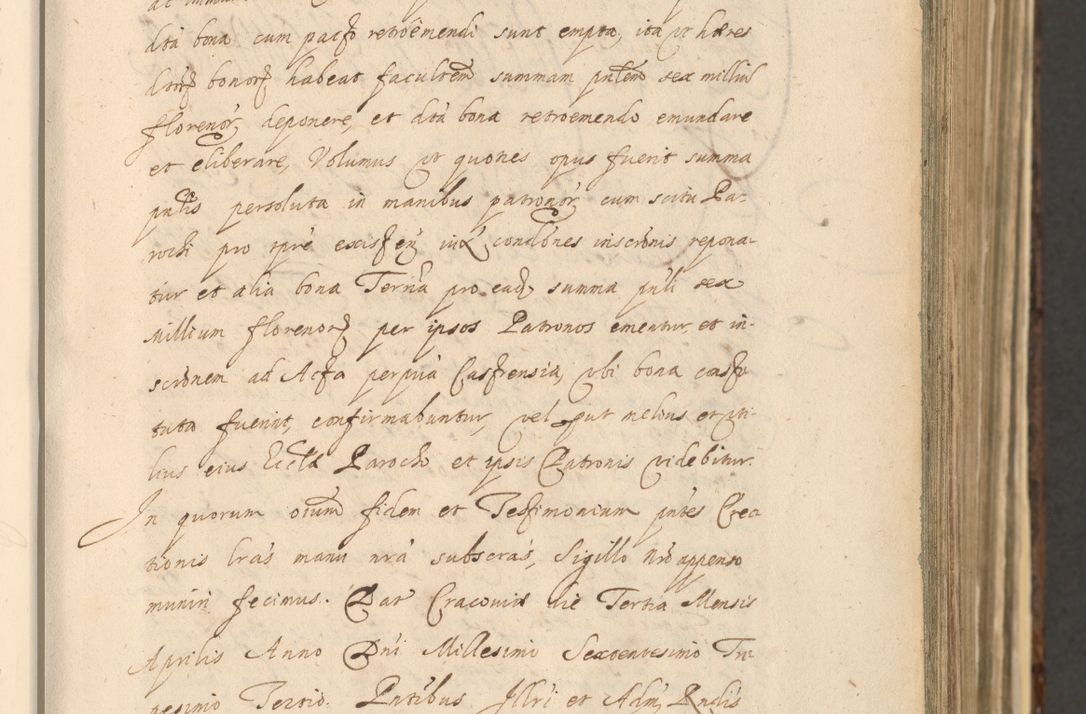 dta bona cum pacto retroemendi sunt empta, ita ut hæres
dtorum bonorum habeat facultem summam pntem sex milliu
florenor, deponere, et dta bona retroemendo emundare
et eliberare, Volumus ut quones opus fuerit summa
pntis persoluta in manibus patronor, cum scitu Pa-
rochi pro tpre existen, iux condones inscronis repona-
tur et alia bona Terrna pro ead summa pnti sex
Millium florenor per ipsos Patronos emeatur, et in-
scronem ad Acta perpua Castrensia, ubi bona consti
tuta fuerint, confirmabuntur, vel put melius et uti-
lius eius Eccla Parocho et ipsis Patronis videbitur.
In quorum oium fidem et Testimonium pntes Erec
tionis lras manu nra subscras, Sigillo nro appenso
muniri fecimus. Dat Cracoviæ die Tertia Mensis
Aprilis Anno Dni Millesimo Sexcentesimo Tri
gesimo Tertio. Pntibus Illri et Adm Rndis